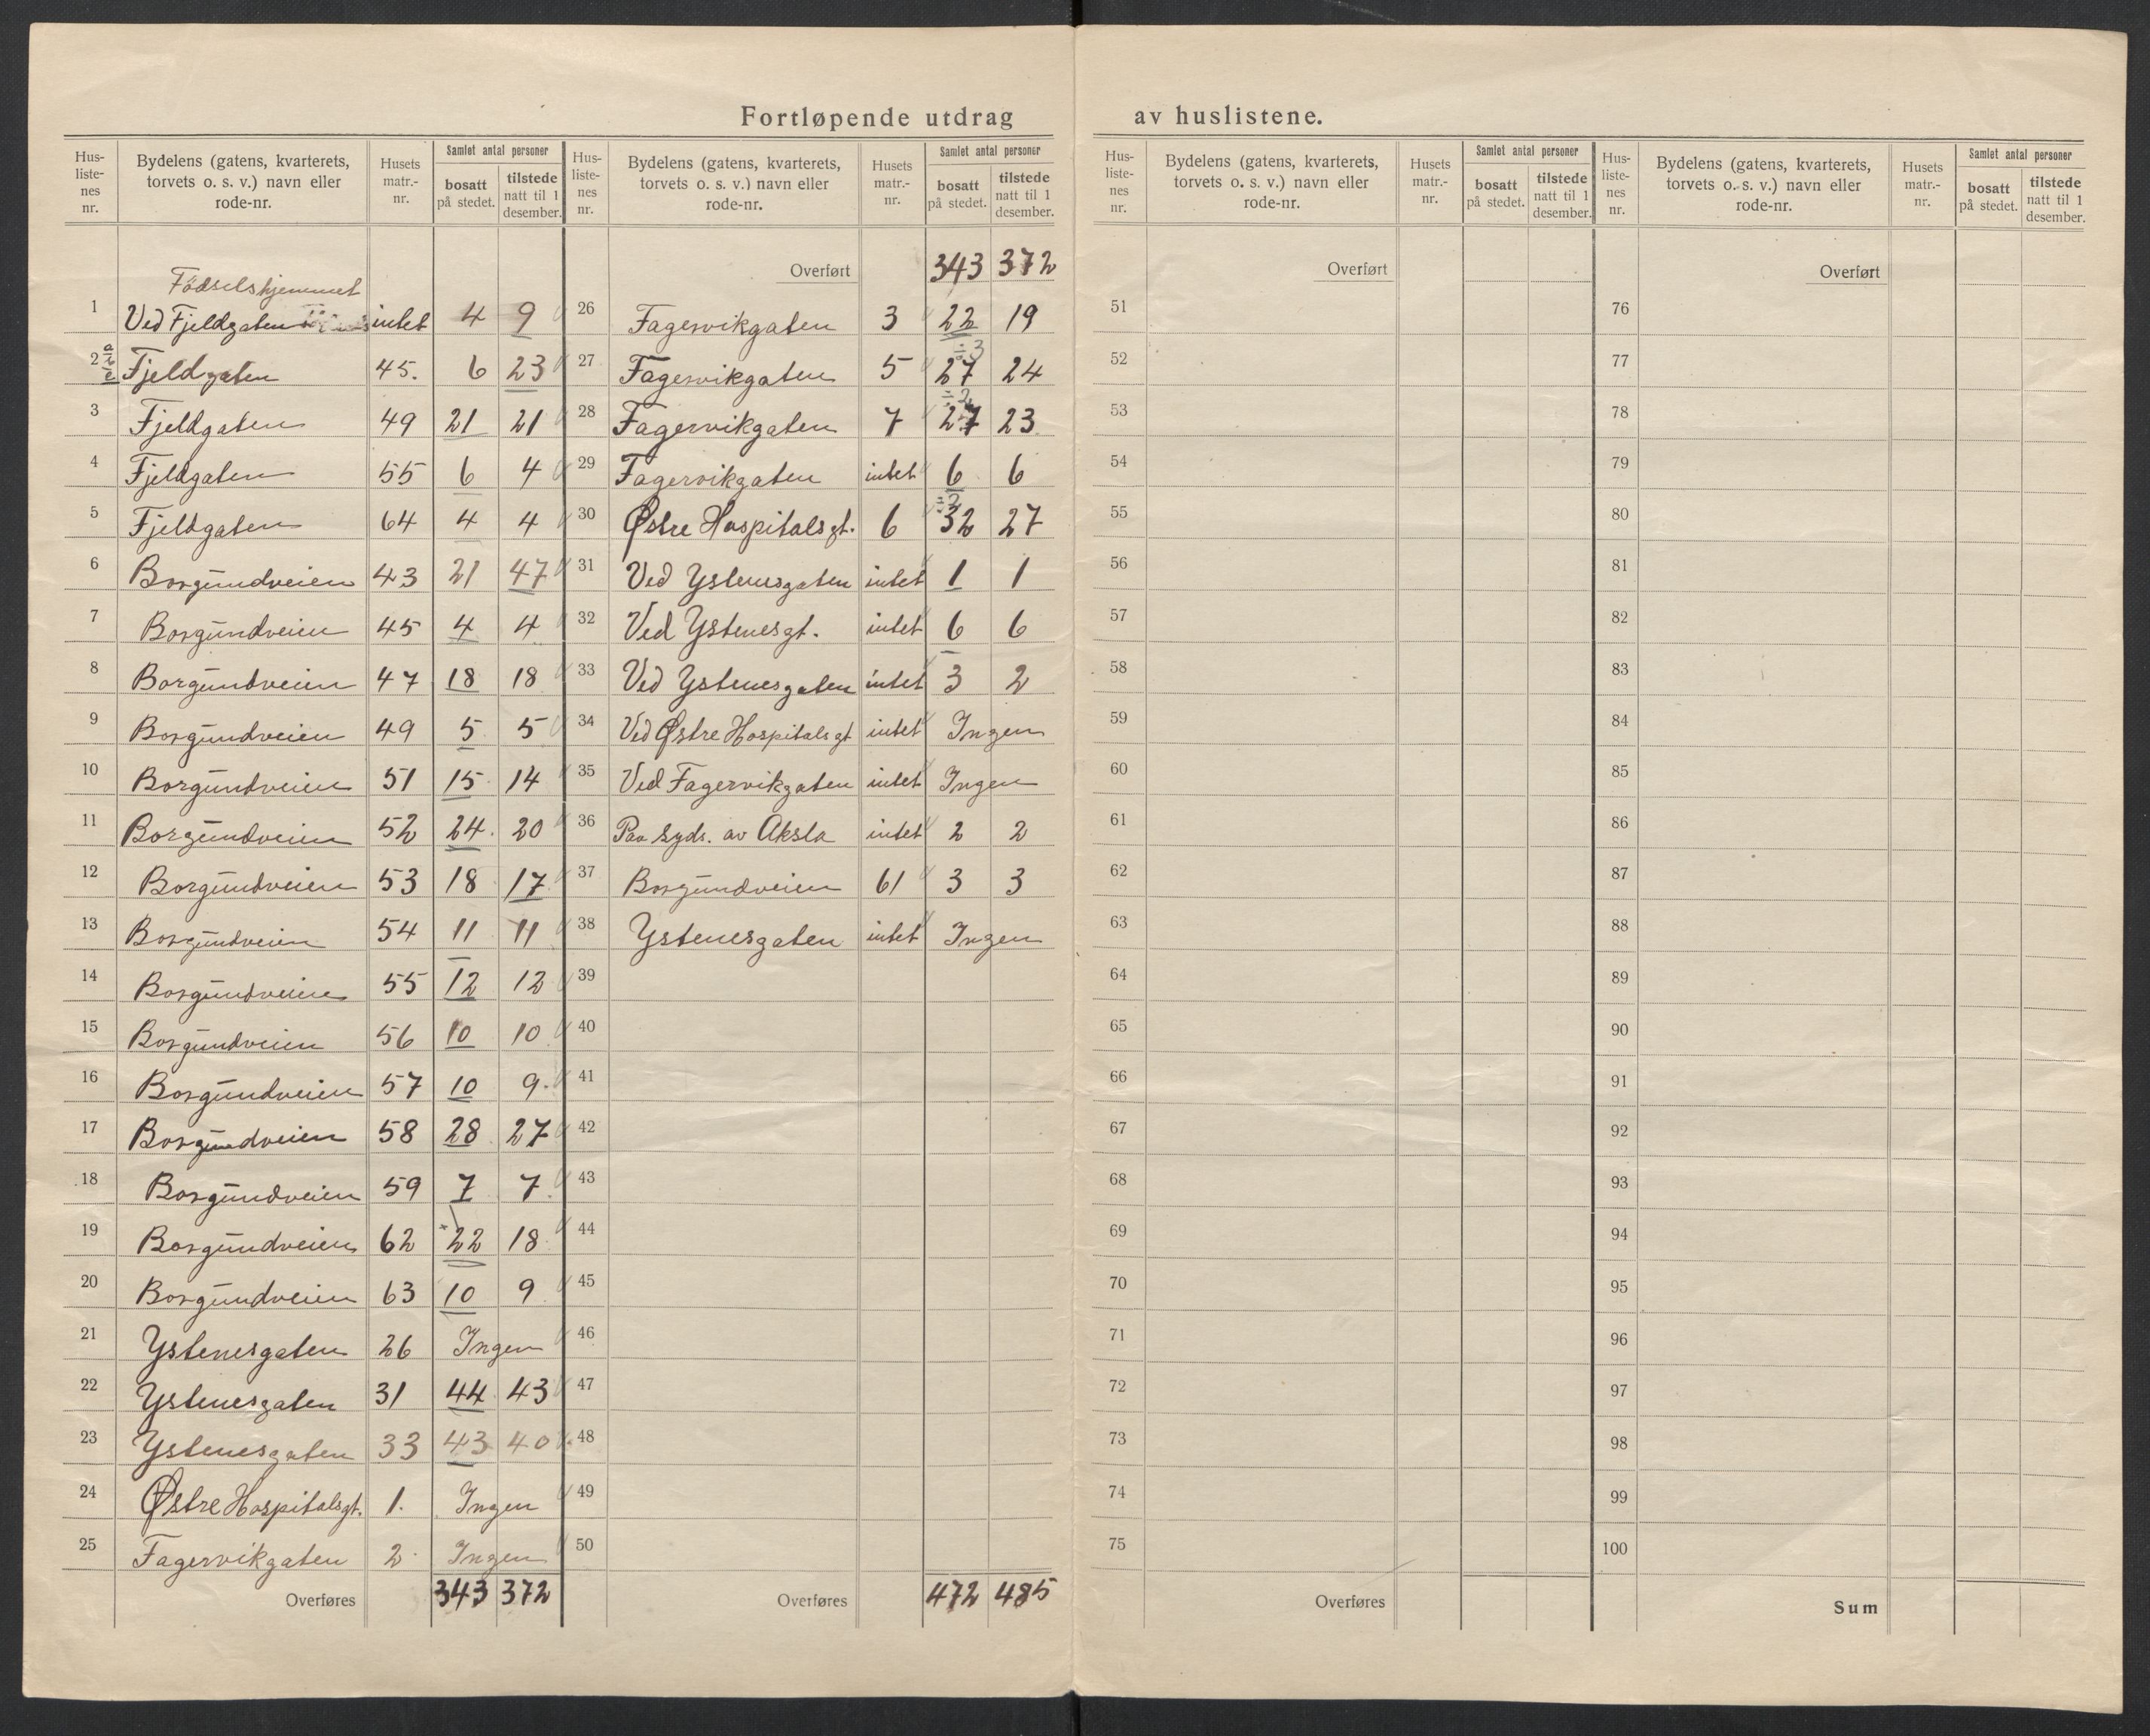 Fortløpende utdrag av huslistene.
Hus-listenes nr. | Bydelens (gatens, kvarterets, torvets o. s. v.) navn eller rode-nr. | Husets matr.-nr. | Samlet antal personer | bosatt på stedet. | tilstede natt til 1 desember.
Fødselshjemmet
1 Ved Fjeldgaten intet 4 9
2 a b c Fjeldgaten 45. 6 23
3 Fjeldgaten 49 21 21
4 Fjeldgaten 55 6 4
5 Fjeldgaten 64 4 4
6 Borgundveien 43 21 47
7 Borgundveien 45 4 4
8 Borgundveien 47 18 18
9 Borgundveien 49 5 5
10 Borgundveien 51 15 14
11 Borgundveien 52 24. 20
12 Borgundveien 53 18 17
13 Borgundveien 54 11 11
14 Borgundveien 55 12 12
15 Borgundveien 56 10 10
16 Borgundveien 57 10 9.
17 Borgundveien 58 28 27
18 Borgundveien 59 7 7.
19 Borgundveien 62 22 18
20 Borgundveien 63 10 9
21 Ystenesgaten 26 Ingen
22 Ystenesgaten 31 44 43
23 Ystenesgaten 33 43 40
24 Østre Hospitalsgt. 1. Ingen
25 Fagervikgaten 2 Ingen
Overføres 343 372
Hus-listenes nr. | Bydelens (gatens, kvarterets, torvets o. s. v.) navn eller rode-nr. | Husets matr.-nr. | Samlet antal personer | bosatt på stedet. | tilstede natt til 1 desember.
Overført 343 372
26 Fagervikgaten 3 22 19
÷ 3
27 Fagervikgaten 5 27 24
÷ 2
28 Fagervikgaten 7 27 23
29 Fagervikgaten intet 6 6
30 Østre Hospitalsgt. 6 32 27
31 Ved Ystenesgaten intet 1 1
32 Ved Ystenesgt. intet 6 6
33 Ved Ystenesgaten intet 3 2
34 Ved Østre Hospitalsgt intet Ingen
35 Ved Fagervikgaten intet Ingen
36 Paa syds. av Aksla intet 2 2
37 Borgundveien 61 3 3
38 Ystenesgaten intet Ingen
39
40
41
42
43
44
45
46
47
48
49
50
Overføres 472 485
Hus-listenes nr. | Bydelens (gatens, kvarterets, torvets o. s. v.) navn eller rode-nr. | Husets matr.-nr. | Samlet antal personer | bosatt på stedet. | tilstede natt til 1 desember.
Overført
51
52
53
54
55
56
57
58
59
60
61
62
63
64
65
66
67
68
69
70
71
72
73
74
75
Overføres
Hus-listenes nr. | Bydelens (gatens, kvarterets, torvets o. s. v.) navn eller rode-nr. | Husets matr.-nr. | Samlet antal personer | bosatt på stedet. | tilstede natt til 1 desember.
Overført
76
77
78
79
80
81
82
83
84
85
86
87
88
89
90
91
92
93
94
95
96
97
98
99
100
Sum